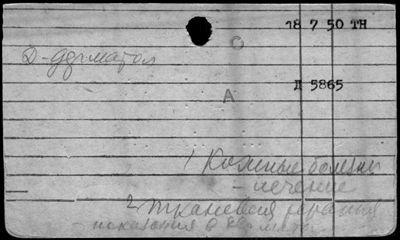 18 7 50 ТН
Д-дерматол
О
Д 5865
А
1 Кожные болезни
- лечение
2. Тканевая терапия
показания в